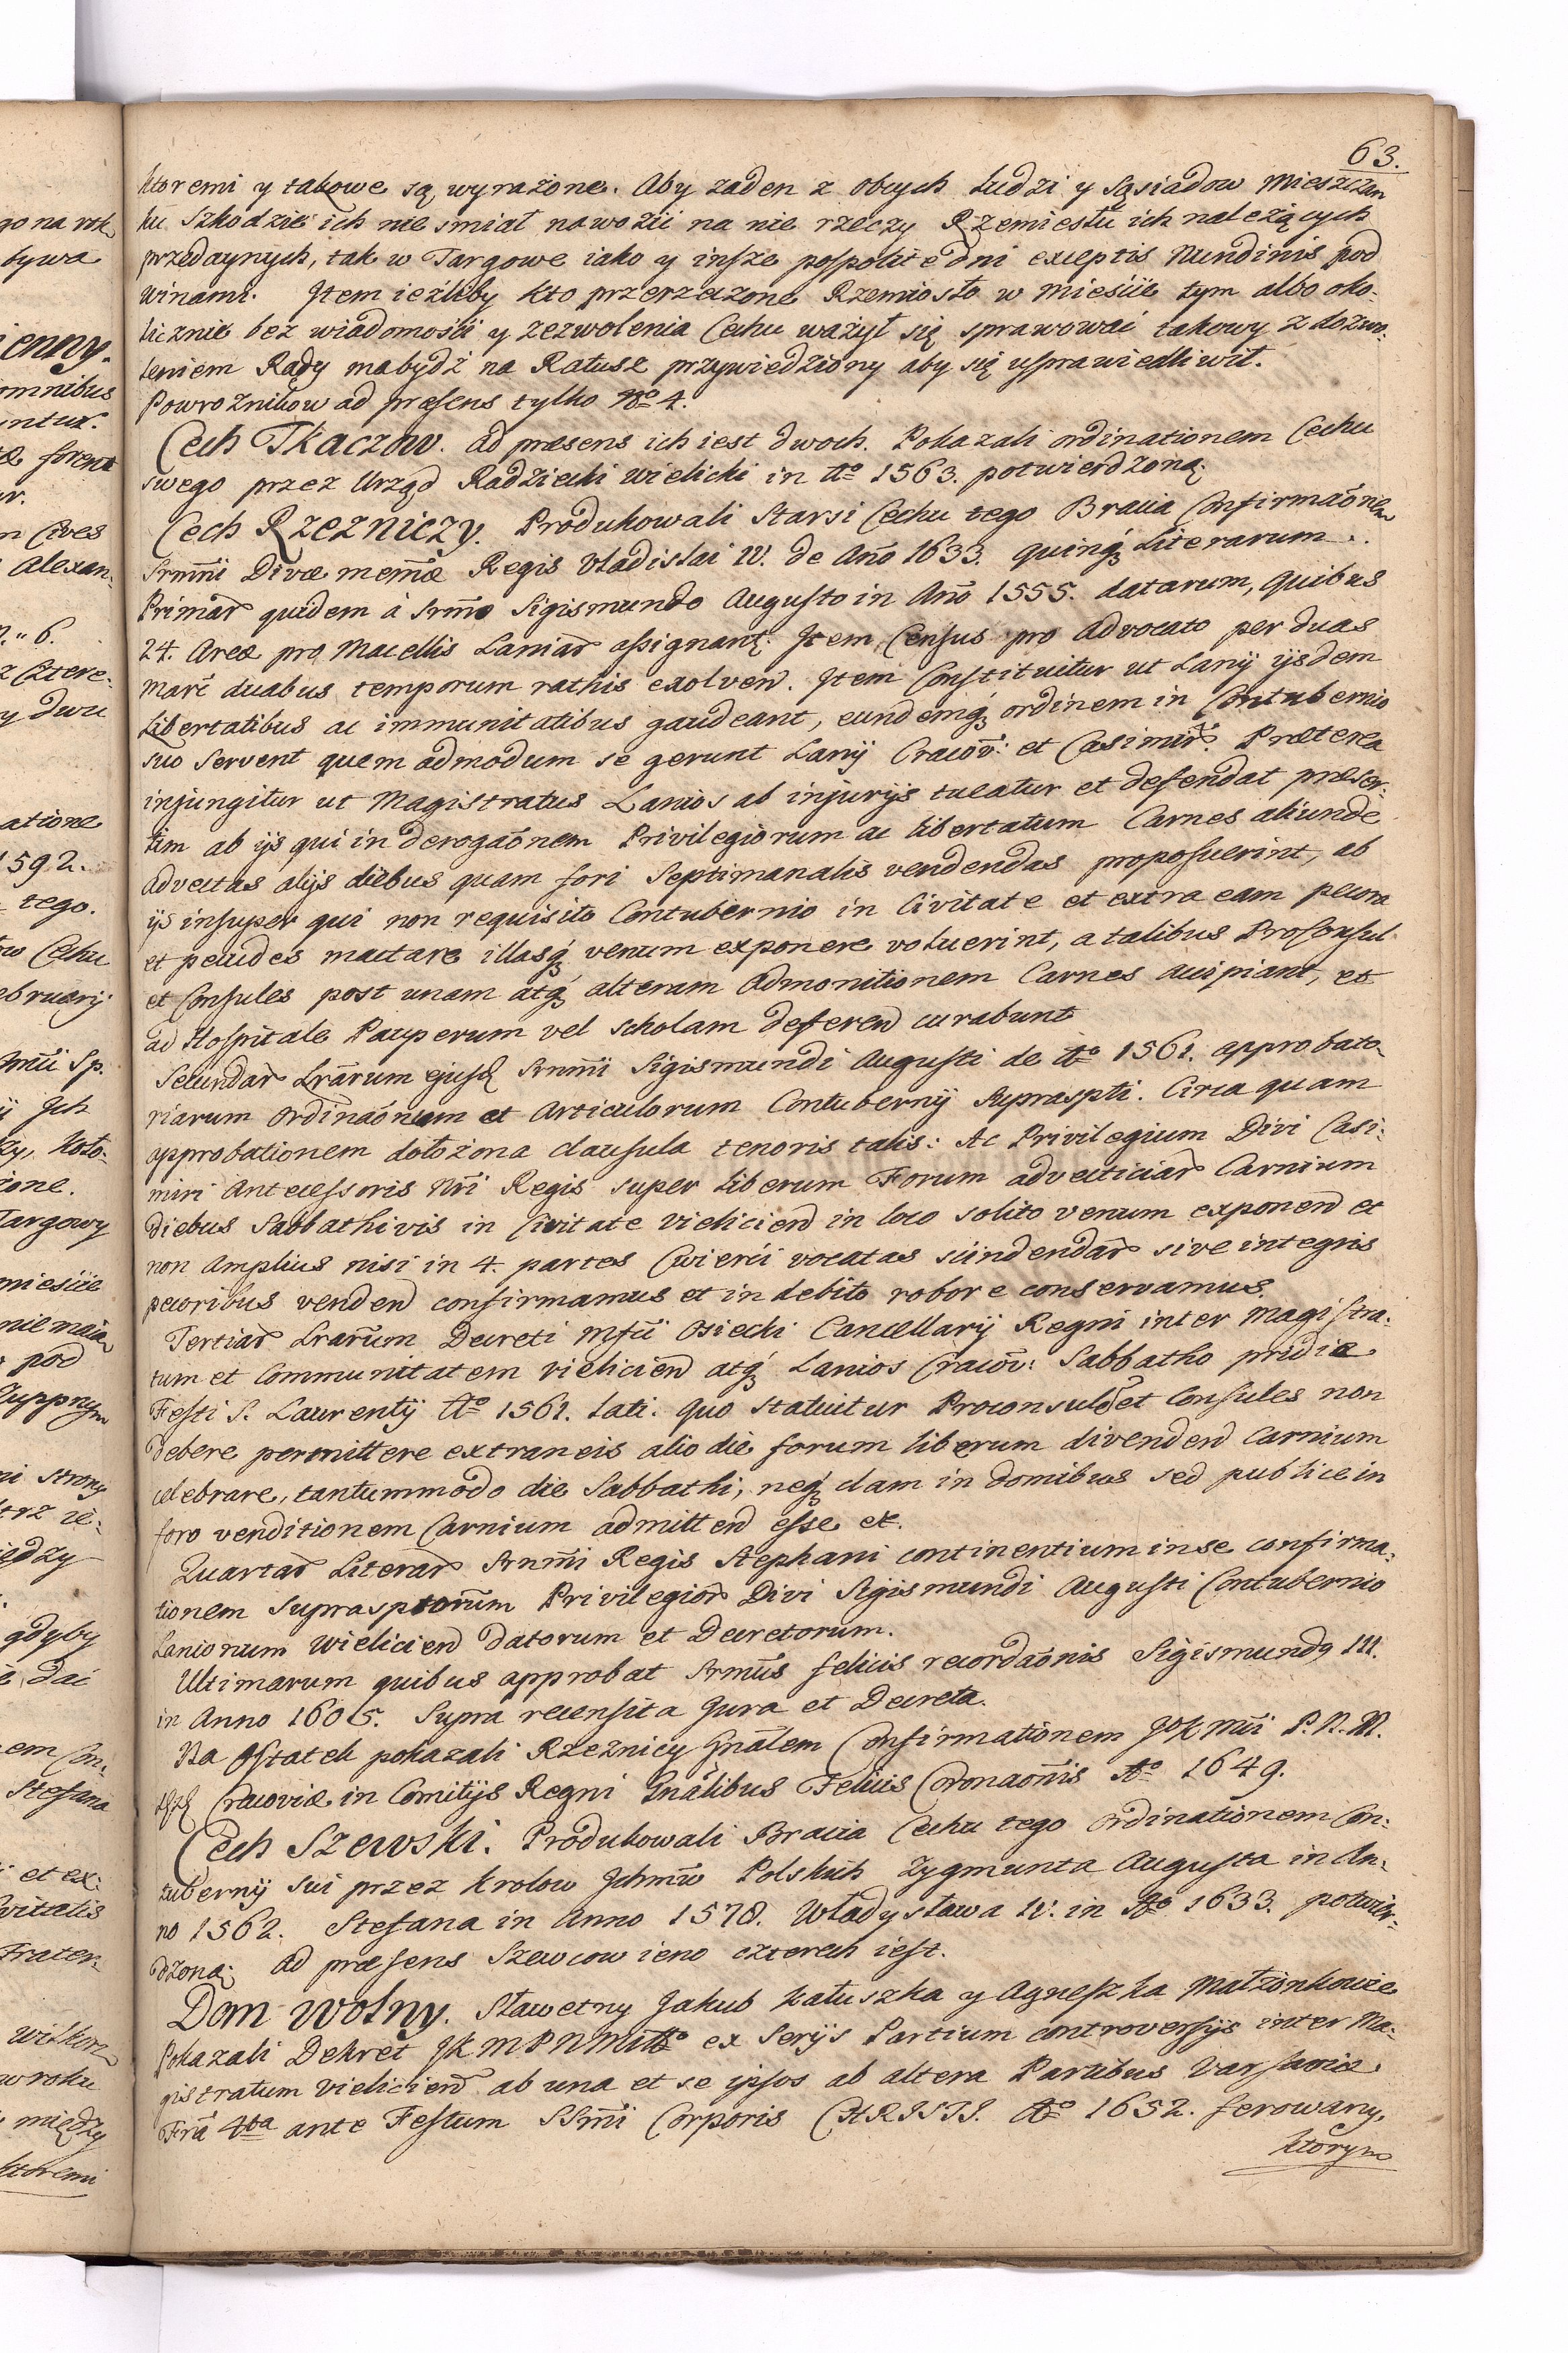 63.
ktoremi y takowe są wyrażone. Aby żaden z obcych Ludzi y Sąsiadow Mieszczan
ku Szkodzie ich nie smiał nawozić na nie rzeczy Rzemiesłu ich należących
przedaynych, tak w Targowe iako y insze pospolite dni exceptis Nundinis pod
winami. Item ieżliby kto przerzeczone Rzemiosło w Mieście tym albo oko-
licznie bez wiadomości y zezwolenia Cechu ważył się sprawować takowy z dozwo-
leniem Rady ma bydź na Ratusz przywiedziony aby się usprawiedliwił.
Powroznikow ad præsens tylko No 4.
Cech Tkaczow. ad præsens ich iest dwoch. Pokazali ordinationem Cechu
swego przez Urząd Radziecki Wielicki in Ao 1563. potwierdzoną.
Cech Rzezniczy. Produkowali Starsi Cechu tego Bracia Confirmaonem
Srmi Divæ memæ Regis Vladislai IV. de Ano 1633. quinq Literarum.
Primar quidem à Srmo Sigismundo Augusto in Ano 1555. datarum, quibus
24. Areæ pro Macellis Laniar assignant. Item Census pro Advocato per duas
Marc duabus temporum rathis exolvend. Item Constituitur ut Lanij ijsdem
Libertatibus ac immunitatibus gaudeant, eundemq ordinem in Contubernio
suo servent quem admodum se gerunt Lanij Cracov: et Casimir. Præterea
injungitur ut Magistratus Lanios ab injurijs tueatur et defendat præser-
tim ab ijs qui in derogaonem Privilegiorum ac libertatum Carnes aliunde
advectas alijs diebus quam fori Septimanalis vendendas proposuerint, ab
ijs insuper qui non requisito Contubernio in Civitate et extra eam pecora
et pecudes mactare illasq venum exponere voluerint, a talibus Proconsul
et Consules post unam atq alteram Admonitionem Carnes accipiant, et
ad Hospitale Pauperum vel scholam deferend curabunt
Secundar Lrarum ejusd Srmi Sigismundi Augusti de Ao 1561. approbato-
riarum Ordinaonum et Articulorum Contubernij suprasptі. Circa quam
approbationem dołożona clausula tenoris talis: Ac Privilegium Divi Casi-
miri Antecessoris Nri Regis super liberum Forum advecticiar Carnium
diebus Sabbathivis in Civitate Vieliciend in loco solito venum exponend et
non Amplius nisi in 4. partes Cwierci vocatas scindendar sive integris
pecoribus vendend confirmamus et in debito robore conservamus.
Tertiar Lrarum Decreti Mfci Osiecki Cancellarij Regni inter Magistra-
tum et Communitatem vieliciend atq Lanios Cracov: Sabbatho pridie
Festi S. Laurentij Ao 1561. Lati. quo statuitur Proconsul et Consules non
debere permittere extraneis alio die forum liberum divendend Carnium
celebrare, tantummodo die Sabbathi, neq clam in domibus sed publice in
foro venditionem Carnium admittend esse et.
Quartar Literar Srmi Regis Stephani continentium in se confirma-
tionem suprasptorum Privilegior Divi Sigismundi Augusti Contubernio
Lanionum Wieliciend datorum et Decretorum.
Ultimarum quibus approbat Srmus felicis recordaonis Sigismund9 III.
in Anno 1605. Supra recensita Jura et Decreta.
Na Ostatek pokazali Rzeznicy Gnalem Confirmationem JoK Mci P. N. M.
Cracoviæ in Comitijs Regni Gnalibus Felicis Coronaonis Ao 1649.
Cech Szewski. Produkowali Bracia Cechu tego Ordinationem Con-
tubernij sui przez Krolow Ichmw Polskich Zygmunta Augusta in An-
no 1562. Stefana in Anno 1578. Władysława IV. in Ao 1633. potwier-
dzoną. ad præsens Szewcow ieno czterech iest.
Dom wolny. Sławetny Jakub Kałuszka y Agneszka Małżonkowie
Pokazali Dekret JKMPNMitto ex Serijs Partium controversijs inter Ma-
gistratum Vieliciend ab una et se ipsos ab altera Partibus Varsaviæ
Fria 4ta ante Festum SSmi Corporis CHRISTI. Ao 1652. ferowany.
Ktorym